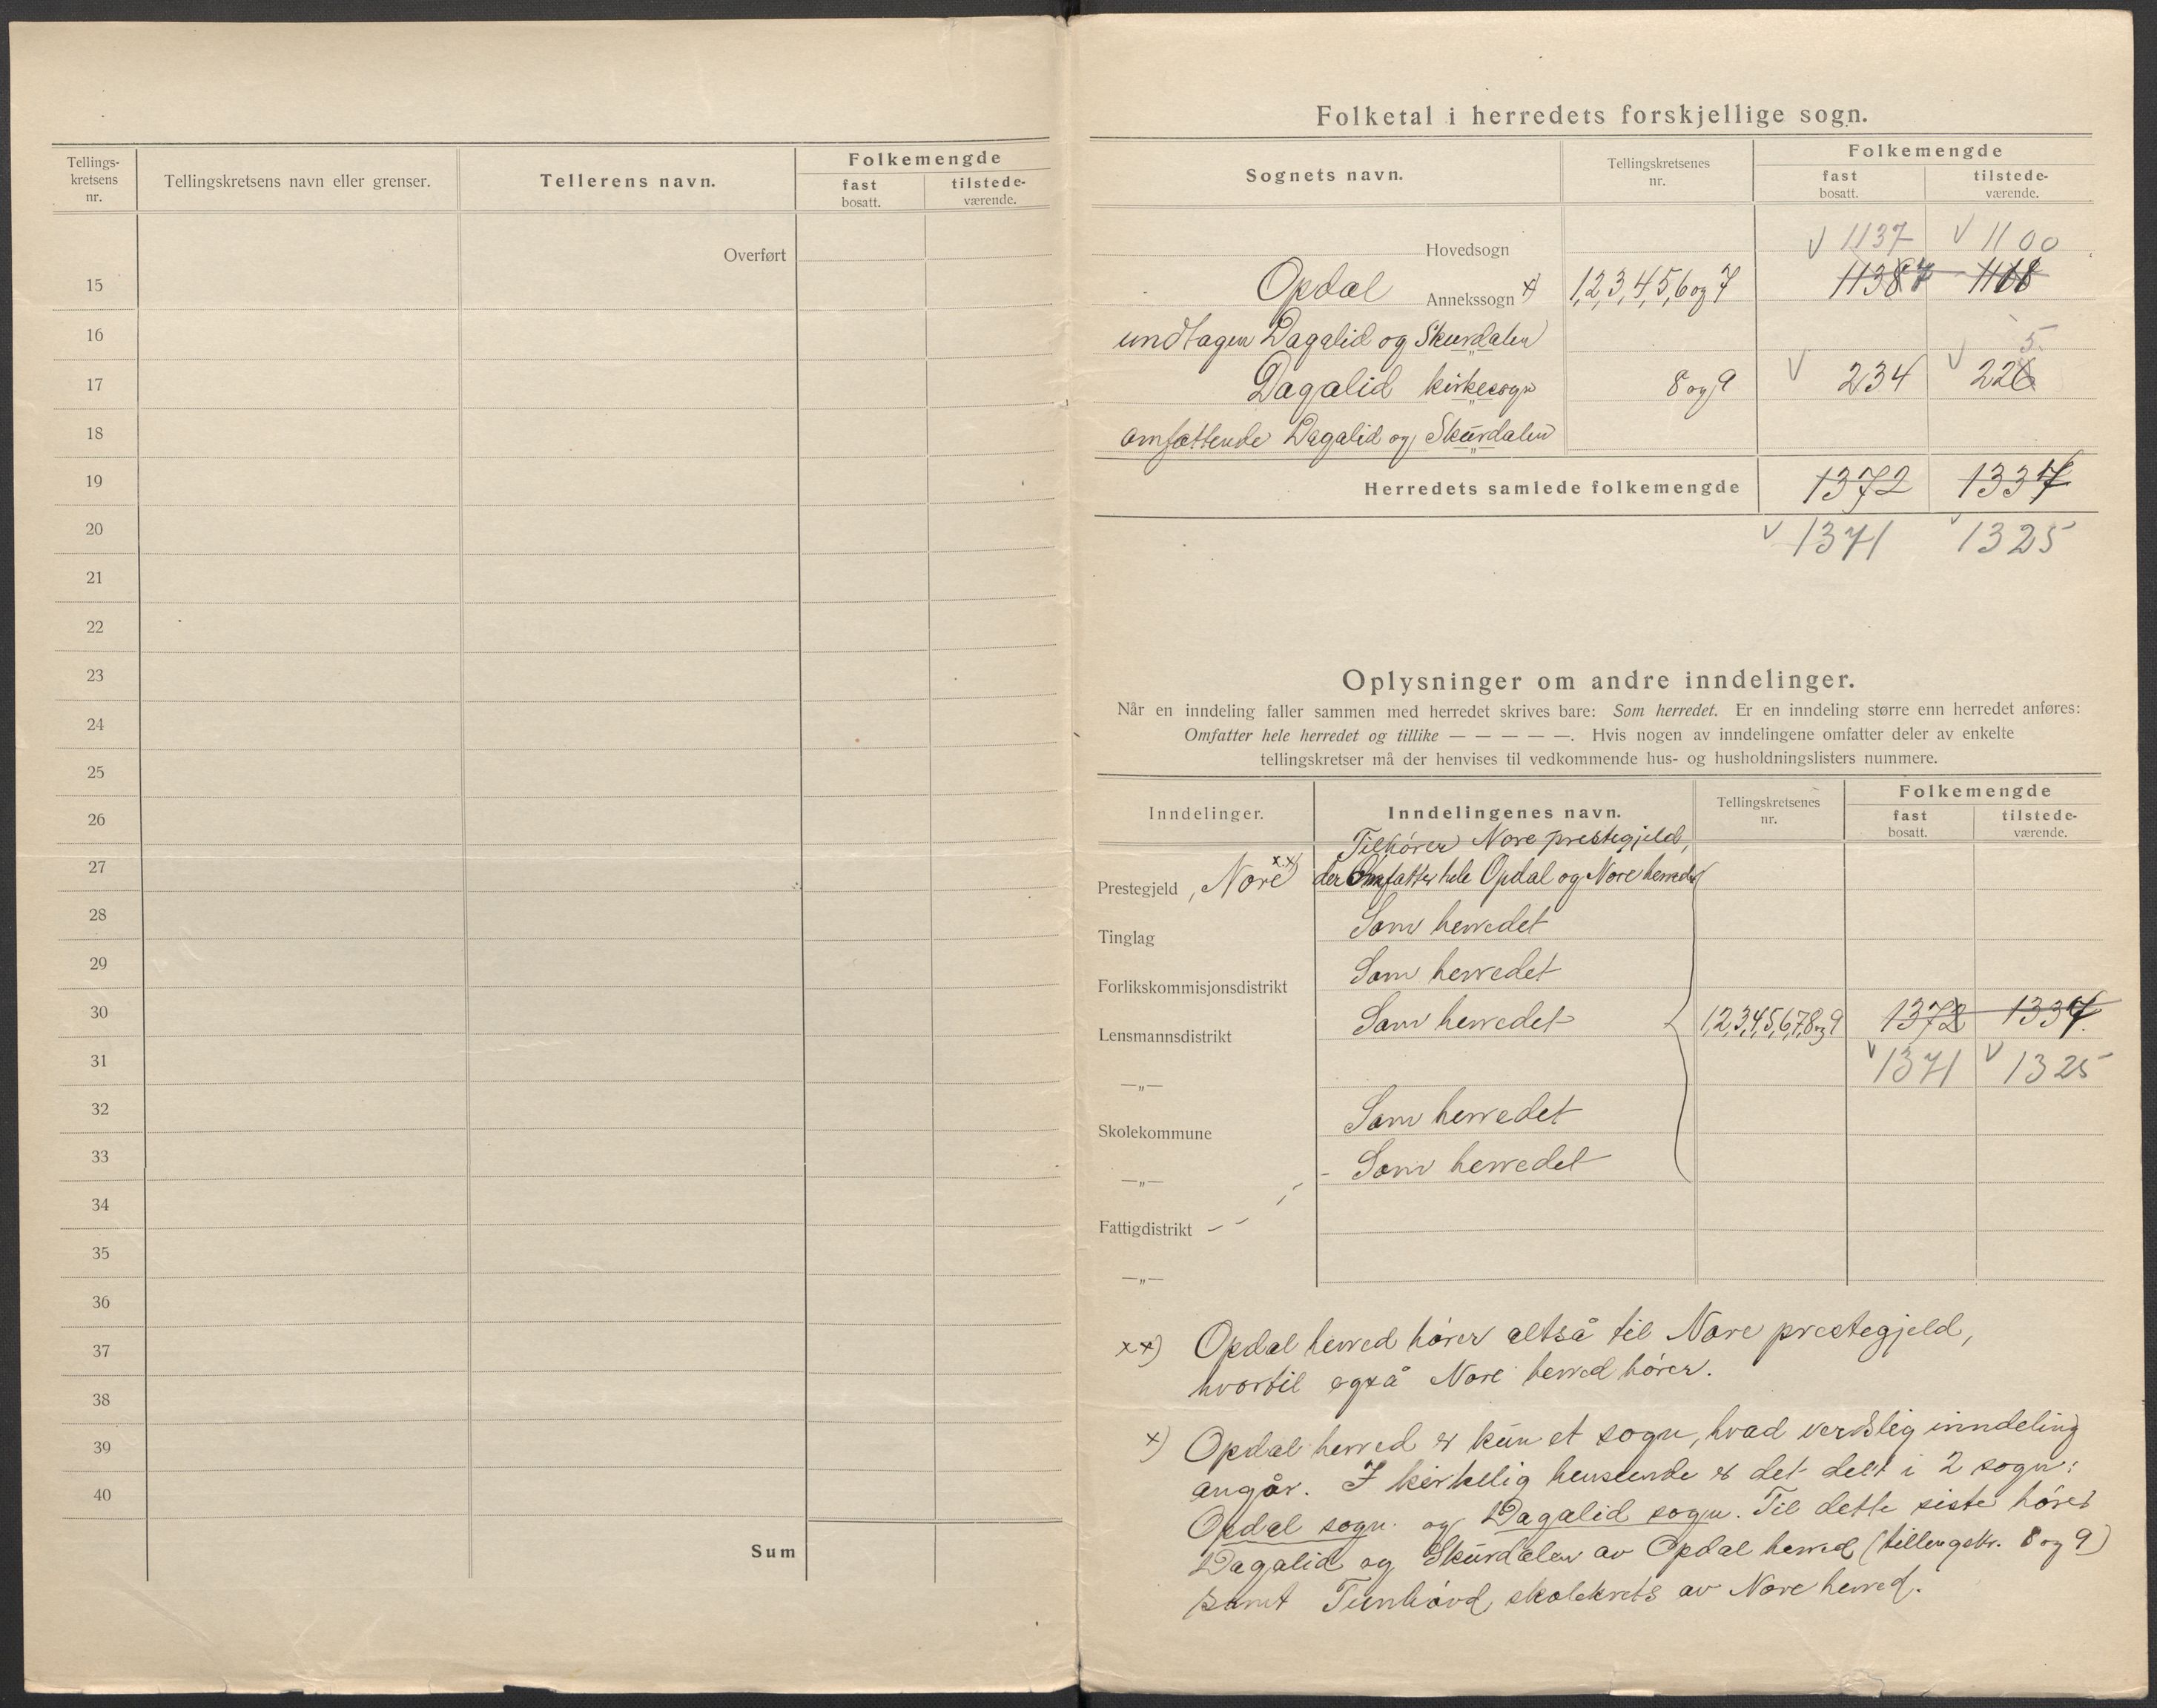 Tellings-
kretsens
nr.
Tellingskretsens navn eller grenser.
Tellerens navn.
Folkemengde
fast
bosatt.
tilstede-
værende.
Overført
15
16
17
18
19
20
21
22
23
24
25
26
27
28
29
30
31
32
33
34
35
36
37
38
39
40
Sum
Folketal i herredets forskjellige sogn.
Sognets navn.
Tellingskretsenes
nr.
Folkemengde
fast
bosatt.
tilstede-
værende.
Hovedsogn
v 1137 v 1100
Opdal Annekssogn x) 1,2,3,4,5,6 og 7 1138 7 1118
undtagen Dagalid og Skurdalen
5.
Dagalid kirkesogn 8 og 9 v 234 v 226
omfattende Dagalid og Skurdalen
Herredets samlede folkemengde 1372 1337
v 1371 v 1325
Oplysninger om andre inndelinger.
Når en inndeling faller sammen med herredet skrives bare: Som herredet. Er en inndeling større enn herredet anføres:
Omfatter hele herredet og tillike — — — — —. Hvis nogen av inndelingene omfatter deler av enkelte
tellingskretser må der henvises til vedkommende hus- og husholdningslisters nummere.
Inndelinger.
Inndelingenes navn.
Tellingskretsenes
nr.
Folkemengde
fast
bosatt.
tilstede-
værende.
Tilhører Nore prestegjeld,
Prestegjeld, Nore xx) der Omfatter hele Opdal og Nore herreder
Tinglag Som herredet
Forlikskommisjonsdistrikt Som herredet
Lensmannsdistrikt Som herredet 1,2,3,4,5,6,7,8 og 9 1372 1337
—„— v 1371 v 1325
Skolekommune Som herredet
—„— - Som herredet
Fattigdistrikt - -
—„—
xx) Opdal herred hører altså til Nore prestegjeld,
hvortil også Nore herred hører.
x) Opdal herred er kun et sogn, hvad verdslig inndeling
angår. I kirkelig henseende er det delt i 2 sogn:
Opdal sogn og Dagalid sogn. Til dette siste hører
Dagalid og Skurdalen av Opdal herred (tellingskr. 8 og 9)
samt Tunhövd skolekrets av Nore herred.